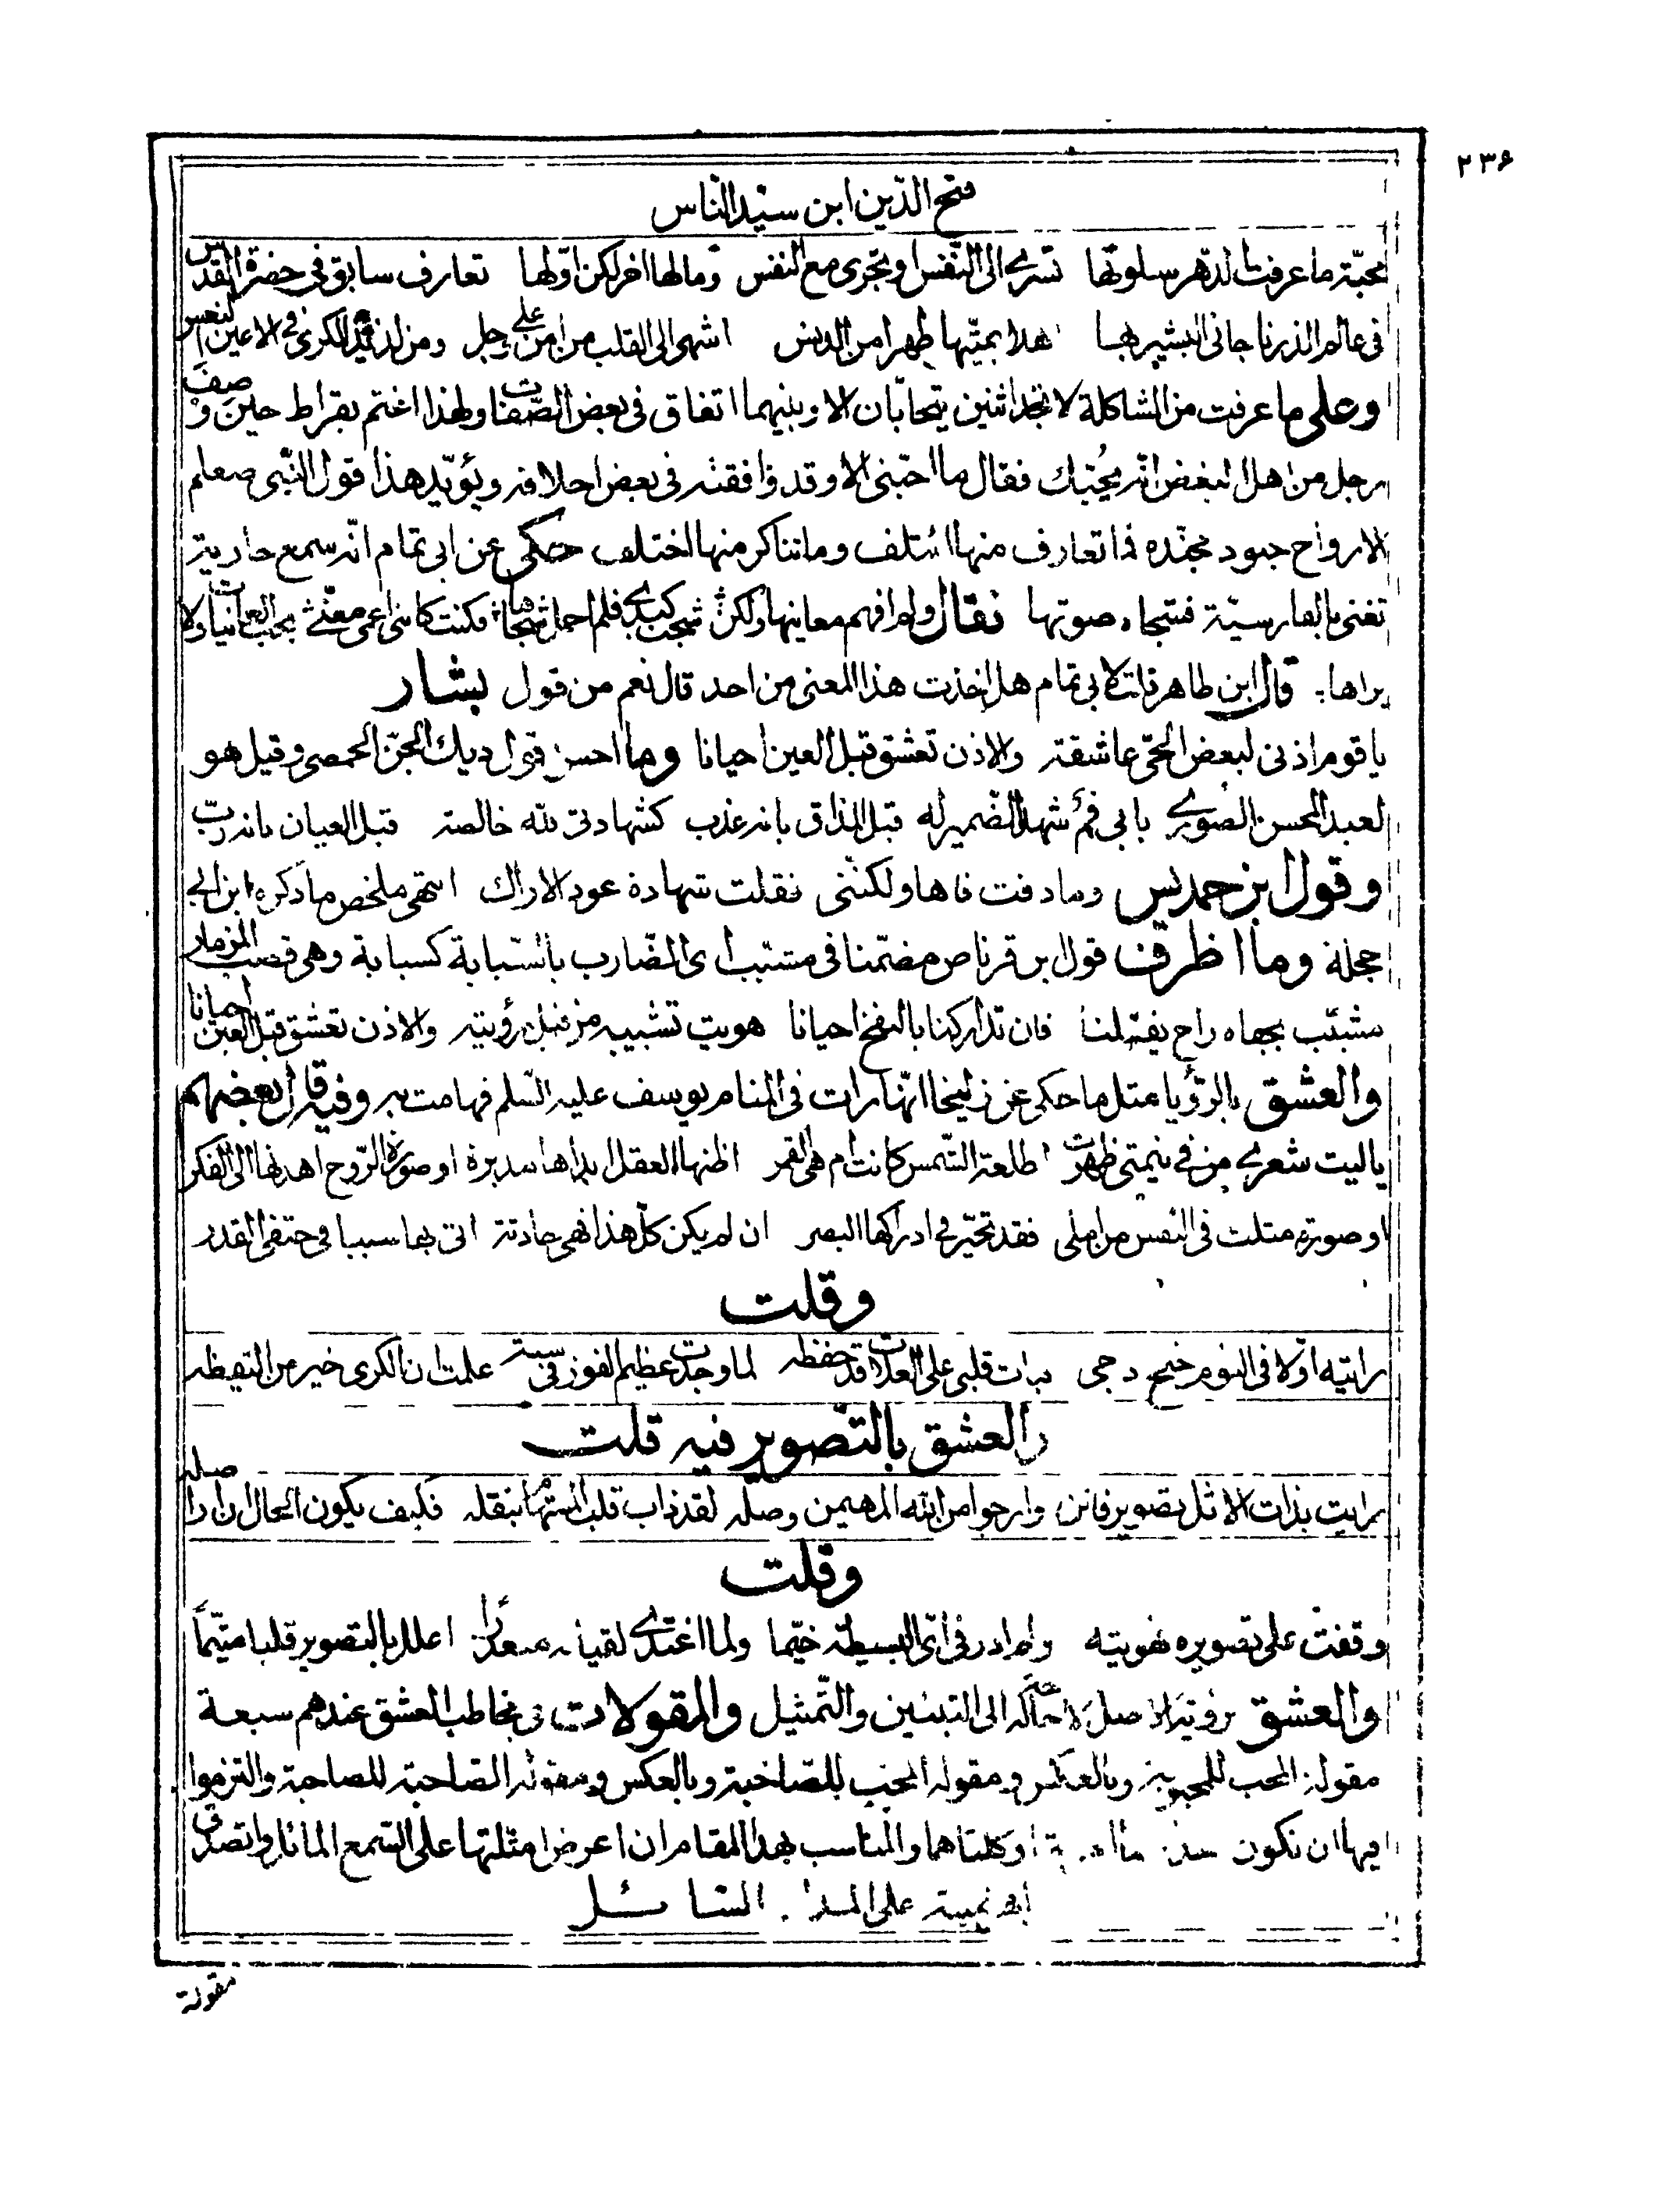 ۲۳۶
فتح الدّين ابن سيّد الناس
محبّة ما عرفت الدهر سلوتها تسرى الى النّفس او تجرى مع النفس وما لها اخر لكن اوّلها تعارف سابق فى حضرة القدس
فى عالم الذر ناجانى البشير بها اهلا بميّتها طهرا من الدنس اشهى الى القلب من امن على وجل ومن لذيذ الكرى فى الاعين النعس
وعلى ما عرفت من المشاكلة لا تجد اثنين يتحابّان الا وبينهما اتفاق فى بعض الصّفات ولهذا اغتم بقراط حين وصف
رجل من اهل النغض انّه يحبّك فقال ما احبّنى الا وقد وافقته فى بعض اخلاقه ويؤيّد هذا قول النّبى صعلم
الارواح جنود مجنّده فما تعارف منها ائتلف وما تناكر منها اختلف حكى عن ابى تمام انّه سمع جارية
تغنى بالفارسيّة فشجاه صوتها فقال ولم افهم معانيها ولكن شجت كبدى فلم احمل شجاها فكنت كاننى اعمى معنّى بحب الغانيات ولا
يراها قال ابن طاهر قلت لابى تمام هل اخذت هذا المعنى من احد قال نعم من قول بشار
يا قوم اذنى لبعض الحىّ عاشقة والاذن تعشق قبل العين احيانا وما احسن قول ديك الجنّ الحمصى وقيل هو
لعبد المحسن الصورى بابى فم شهد الضمير له قبل المذاق بانه عذب كشهادتى لله خالصة قبل العيان بانه ربّ
وقول ابن حمديس وما ذقت فاها ولكنّنى نقلت شهادة عود الاراك انتهى ملخص ما ذكره ابن ابى
حجلة وما اظرف قول بن قرناص مضمّنا فى مشبّب اى الضّارب بالشبّابة كسبابة وهى قصب المزمار
مشبّب بجفاه راح يقتلنا فان تداركنا بالنفخ احيانا هويت تشبيبه من قبل رؤيته والاذن تعشق قبل العين احيانا
والعشق بالرّؤيا مثل ما حكى عن زليخا انّها رات فى المنام يوسف عليه السّلم فهامت به وفيه قال بعضهم
يا ليت شعرى من فى نيمتى ظهرت اطلعة الشّمس كانت ام هى القمر اظنها العقل ابداها تدبره او صورة الرّوح اهدتها الى الفكر
او صورة مثلت فى النفس من املى فقد تحيّر فى ادراكها البصر ان لم يكن كلّ هذا فهى حادثة اتى بها سببا فى حتفى القدر
وقلت
رايته اوّلا فى النوم جنح دجى برات قلبى على العلات قد حفظه لما وجدت عظيم الفوز فى سنة علمت ان الكرى خير من اليقظه
والعشق بالتّصوير فيه قلت
رايت بذات الاثل تصوير فاتن وارجوا من الله المهيمن وصله لقد ذاب قلب المستهام بنقله فكيف يكون الحال ان را صله
وقلت
وقفت على تصويره فهويته ولم ادر فى اىّ البسيطة خيّما ولما اغتدى لقيانه متعذرا اعلل بالتصوير قلبا متيّما
والعشق برؤية الاصل لا حاجة له الى التبئين والتّمثيل والمقولات فى مخاطب العشق عندهم سبعة
مقولة المحب للمحبوبة وبالعكس ومقولة المحب للصّاحبة وبالعكس ومقولة الصّاحبة للصاحبة والتزموا
فيها ان تكون او كلتاهما والمناسب بهذا المقام ان اعرض امثلتها على السّمع المائل واتصدق
على السائل
مقولة